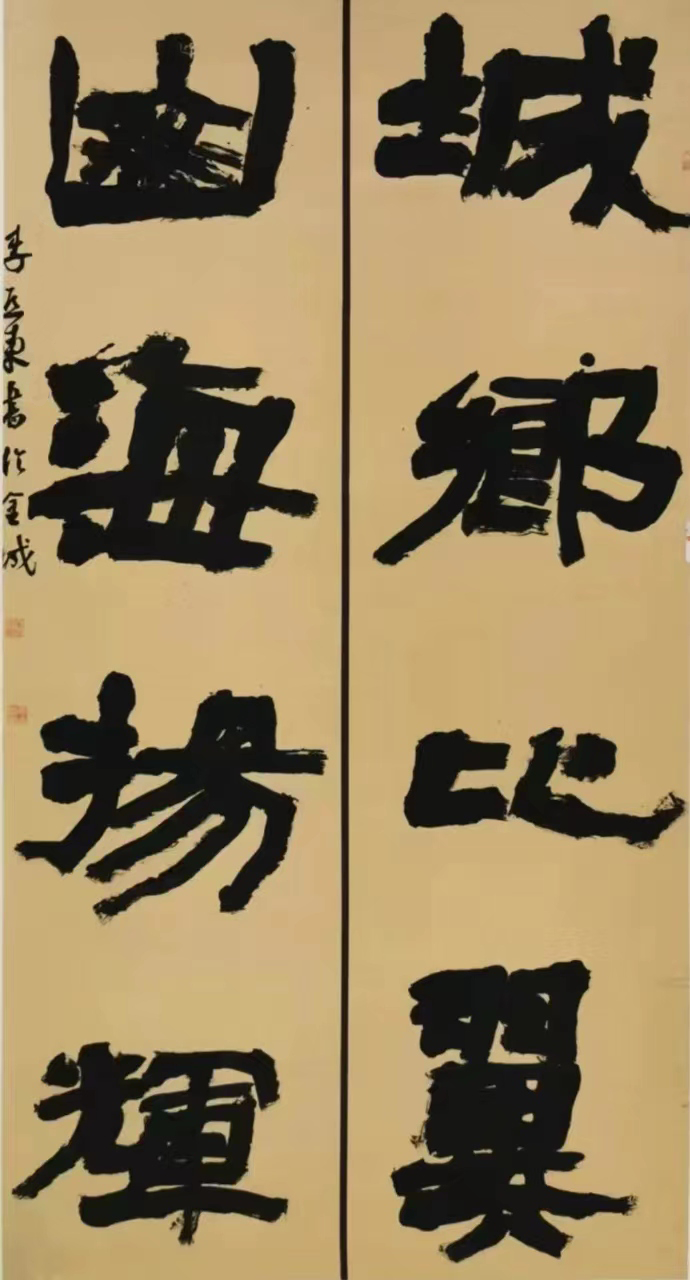 城鄉比翼
山海揚輝
李東書於金城